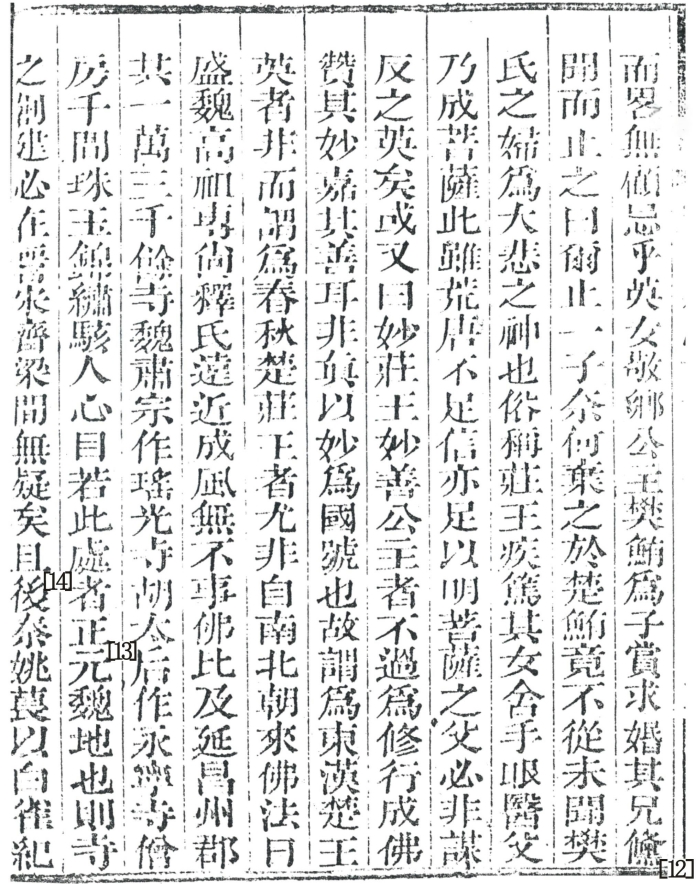 而畧無顧忌乎英女敬鄉公主樊鮪爲子賞求婚其兄儵[12]
聞而止之曰爾止一子奈何棄之於楚鮪竟不從未聞樊
氏之婦爲大悲之神也俗稱莊王疾篤其女舍手眼醫父
乃成菩薩此雖荒唐不足信亦足以明菩薩之父必非謀
反之英矣或又曰妙莊王妙善公主者不過爲修行成佛
贊其妙嘉其善耳非眞以妙爲國號也故謂爲東漢楚王
英者非而謂爲春秋楚莊王者尤非自南北朝來佛法日
盛魏高祖專尚釋氏遠近成風無不事佛比及延昌州郡
共一萬三千餘寺魏肅宗作瑤光寺胡太后作永寧寺僧
房千間珠玉錦繡駭人心目若此處者正[13]元魏地也則寺
之剏建必在晉宋齊梁間無疑矣且後[14]秦姚萇以白雀紀